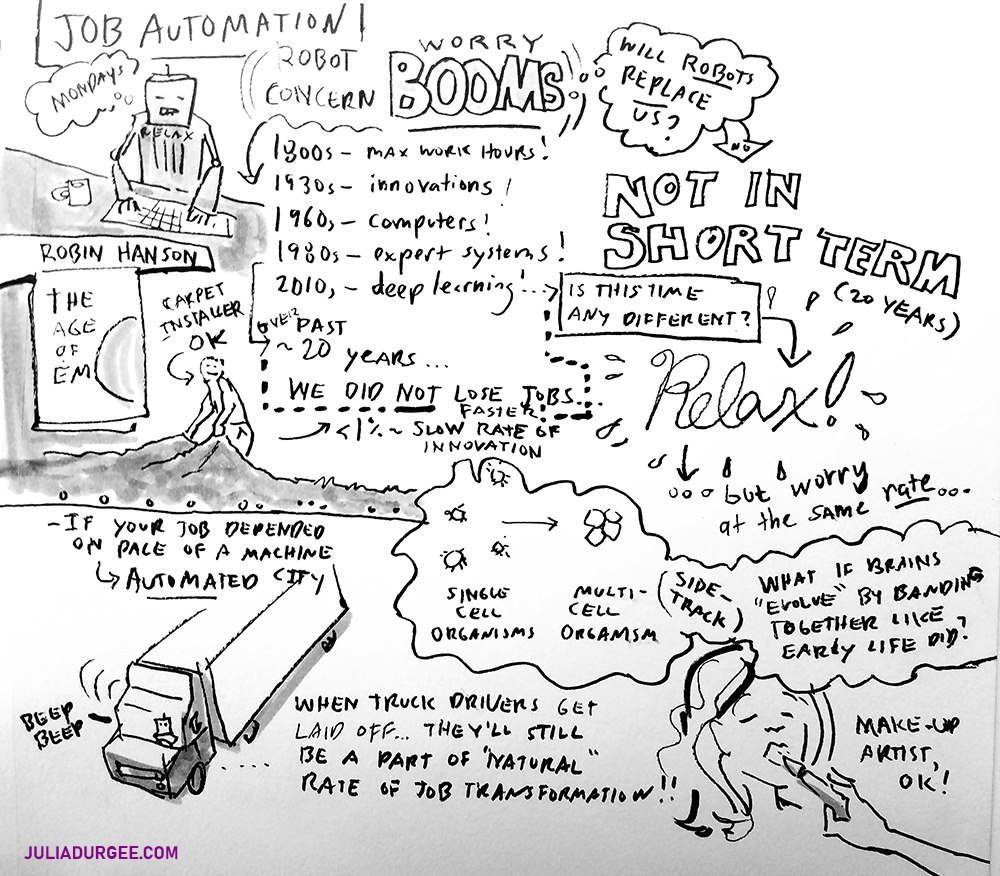 JOB AUTOMATION
MONDAYS
RELAX
ROBOT
CONCERN
WORRY
BOOMS
WILL ROBOTS
REPLACE
US?
NO
NOT IN
SHORT TERM
(20 YEARS)
1800s - MAX WORK HOURS!
1930s - innovations!
1960s - computers!
1980s - expert systems!
2010s - deep learning!...
IS THIS TIME
ANY DIFFERENT?
Relax!
...but worry
at the same rate...
ROBIN HANSON
THE
AGE
OF
EM
CARPET
INSTALLER
OK
OVER PAST
~ 20 years...
WE DID NOT LOSE JOBS
FASTER!
<1% ~ SLOW RATE OF
INNOVATION
- IF YOUR JOB DEPENDED
ON PALE OF A MACHINE
AUTOMATED CITY
SINGLE
CELL
ORGANISMS
MULTI-
CELL
ORGAMSM
(SIDE-
TRACK)
WHAT IF BRAINS
"EVOLVE" BY BANDING
TOGETHER LIKE
EARLY LIFE DID?
BEEP
BEEP
WHEN TRUCK DRIVERS GET
LAID OFF... THEY'LL STILL
BE A PART OF "NATURAL"
RATE OF JOB TRANSFORMATION!!
MAKE-UP
ARTIST,
OK!
JULIADURGEE.COM